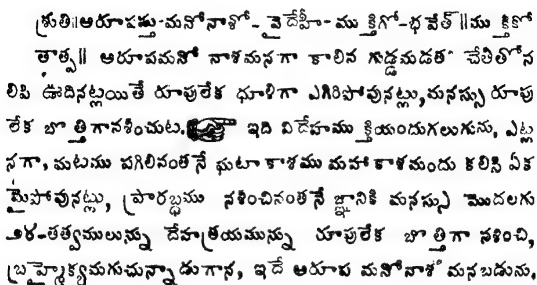 శ్రుతి॥ఆరూపస్తు-మనోనాశో- వైదేహీ-ముక్తిగో-భవేత్॥ముక్తికో
తాత్ప॥ ఆరూపమనో నాశమనగా కాలిన గుడ్డమడత చేతితోన
లిపి ఊదినట్లయితే రూపులేక ధూళిగా ఎగిరిపోవునట్లు,మనస్సు రూపు
లేక బొత్తిగానశించుట. ఇది విదేహముక్తియందుగలుగును, ఎట్ల
నగా, మటము పగిలినంతనే ఘటాకాశము మహాకాశమందు కలిసి ఏక
మైపోవునట్లు, ప్రారబ్ధము నశించినంతనే జ్ఞానికి మనస్సు మొదలగు
తత్వములున్ను దేహత్రయమున్ను రూపులేక బొత్తిగా నశించి,
బ్రహ్మైక్యమగుచున్నాడుగాన, ఇదే ఆరూప మనోనాశ మనబడును,